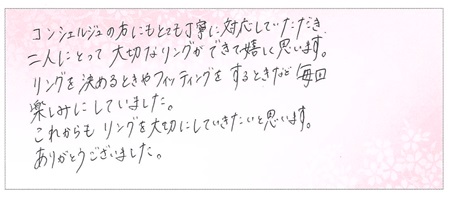 コンシェルジュの方にもとても丁寧に対応していただき
二人にとって大切なリングができて嬉しく思います。
リングを決めるときやフィッティングをするときなど毎回
楽しみにしていました。
これからもリングを大切にしていきたいと思います。
ありがとうございました。